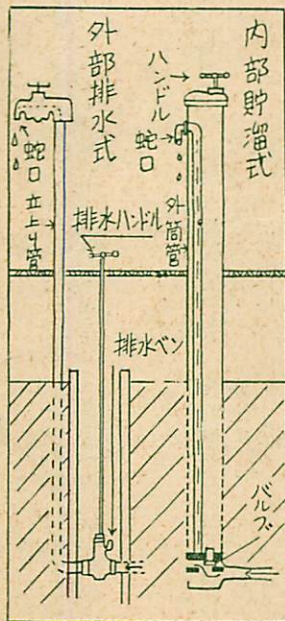 内部貯溜式
ハンドル
蛇口
外筒管
バルブ
外部排水式
蛇口
立上り管
排水ハンドル
排水ベン